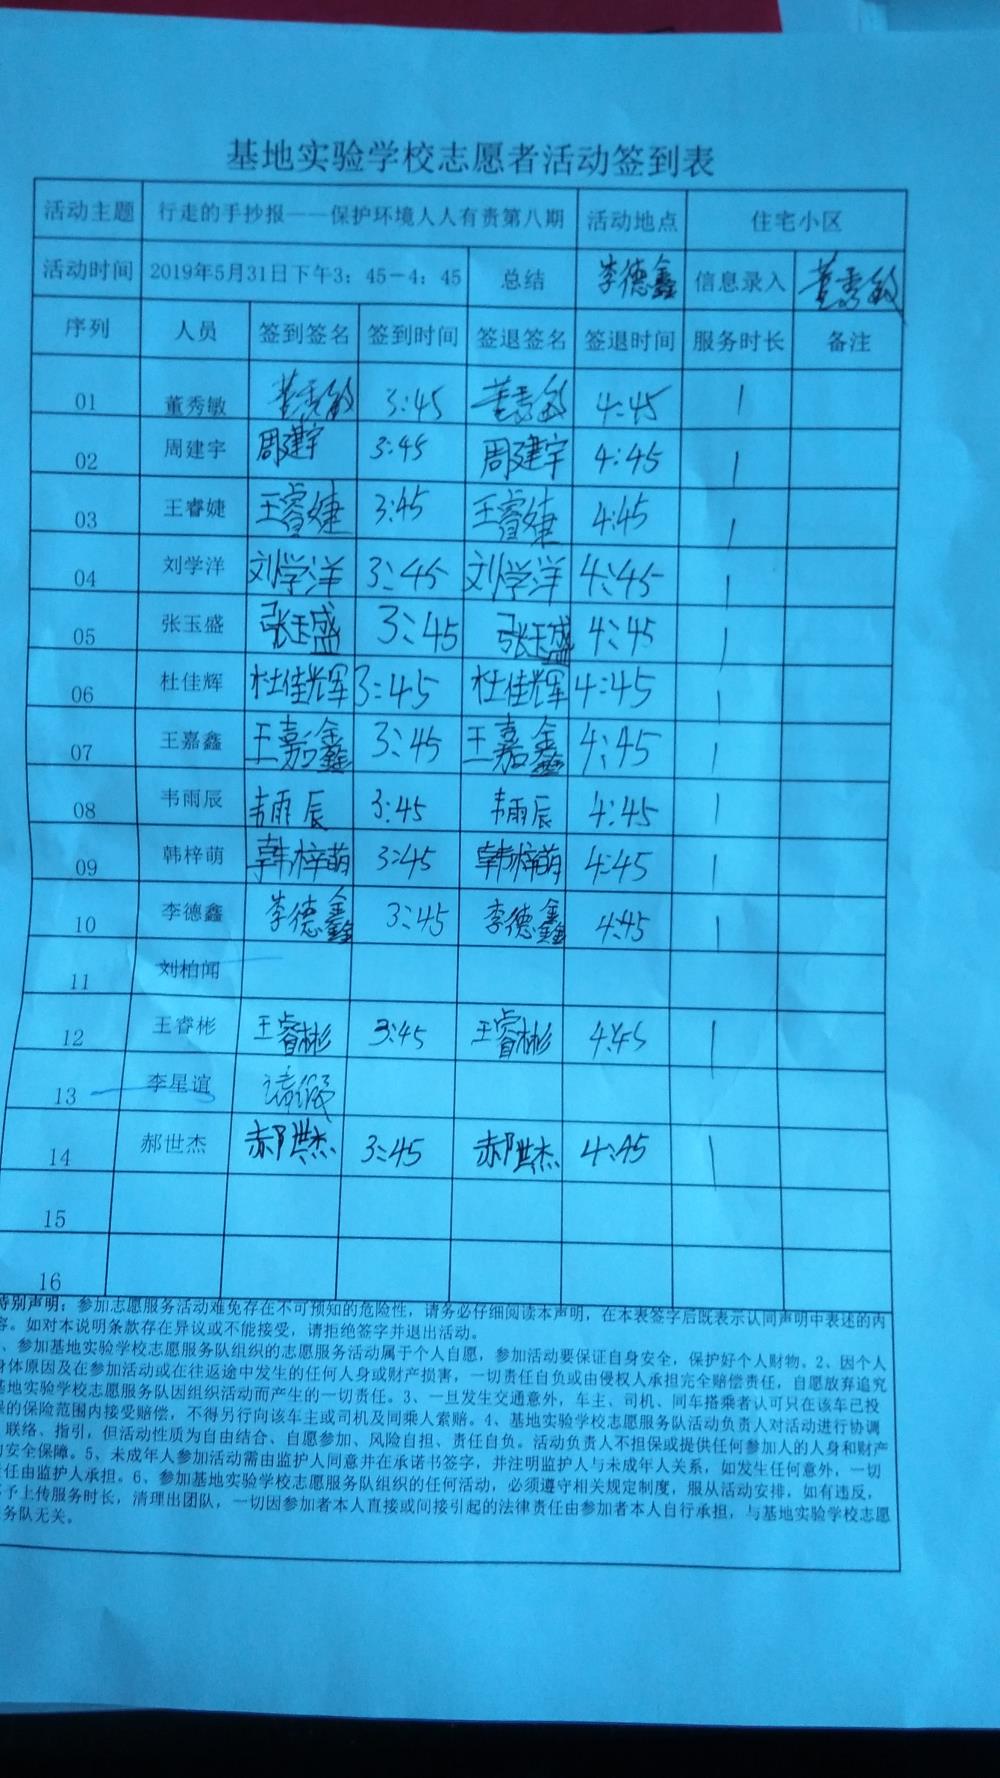 基地实验学校志愿者活动签到表
活动主题 行走的手抄报——保护环境人人有责第八期 活动地点 住宅小区
活动时间 2019年5月31日下午3：45－4：45 总结 李德鑫 信息录入 董秀敏
序列 人员 签到签名 签到时间 签退签名 签退时间 服务时长 备注
01 董秀敏 董秀敏 3:45 董秀敏 4:45 1
02 周建宇 周建宇 3:45 周建宇 4:45 1
03 王睿婕 王睿婕 3:45 王睿婕 4:45 1
04 刘学洋 刘学洋 3:45 刘学洋 4:45 1
05 张玉盛 张玉盛 3:45 张玉盛 4:45 1
06 杜佳辉 杜佳辉 3:45 杜佳辉 4:45 1
07 王嘉鑫 王嘉鑫 3:45 王嘉鑫 4:45 1
08 韦雨辰 韦雨辰 3:45 韦雨辰 4:45 1
09 韩梓萌 韩梓萌 3:45 韩梓萌 4:45 1
10 李德鑫 李德鑫 3:45 李德鑫 4:45 1
11 刘柏闻
12 王睿彬 王睿彬 3:45 王睿彬 4:45 1
13 李星谊 请假
14 郝世杰 郝世杰 3:45 郝世杰 4:45 1
15
16
特别声明：参加志愿服务活动难免存在不可预知的危险性，请务必仔细阅读本声明，在本表签字后既表示认同声明中表述的内
容。如对本说明条款存在异议或不能接受，请拒绝签字并退出活动。
、参加基地实验学校志愿服务队组织的志愿服务活动属于个人自愿，参加活动要保证自身安全，保护好个人财物。2、因个人
身体原因及在参加活动或在往返途中发生的任何人身或财产损害，一切责任自负或由侵权人承担完全赔偿责任，自愿放弃追究
基地实验学校志愿服务队因组织活动而产生的一切责任。3、一旦发生交通意外，车主、司机、同车搭乘者认可只在该车已投
保的保险范围内接受赔偿，不得另行向该车主或司机及同乘人索赔。4、基地实验学校志愿服务队活动负责人对活动进行协调
、联络、指引，但活动性质为自由结合、自愿参加、风险自担、责任自负。活动负责人不担保或提供任何参加人的人身和财产
的安全保障。5、未成年人参加活动需由监护人同意并在承诺书签字，并注明监护人与未成年人关系，如发生任何意外，一切
责任由监护人承担。6、参加基地实验学校志愿服务队组织的任何活动，必须遵守相关规定制度，服从活动安排，如有违反，
不予上传服务时长，清理出团队，一切因参加者本人直接或间接引起的法律责任由参加者本人自行承担，与基地实验学校志愿
服务队无关。